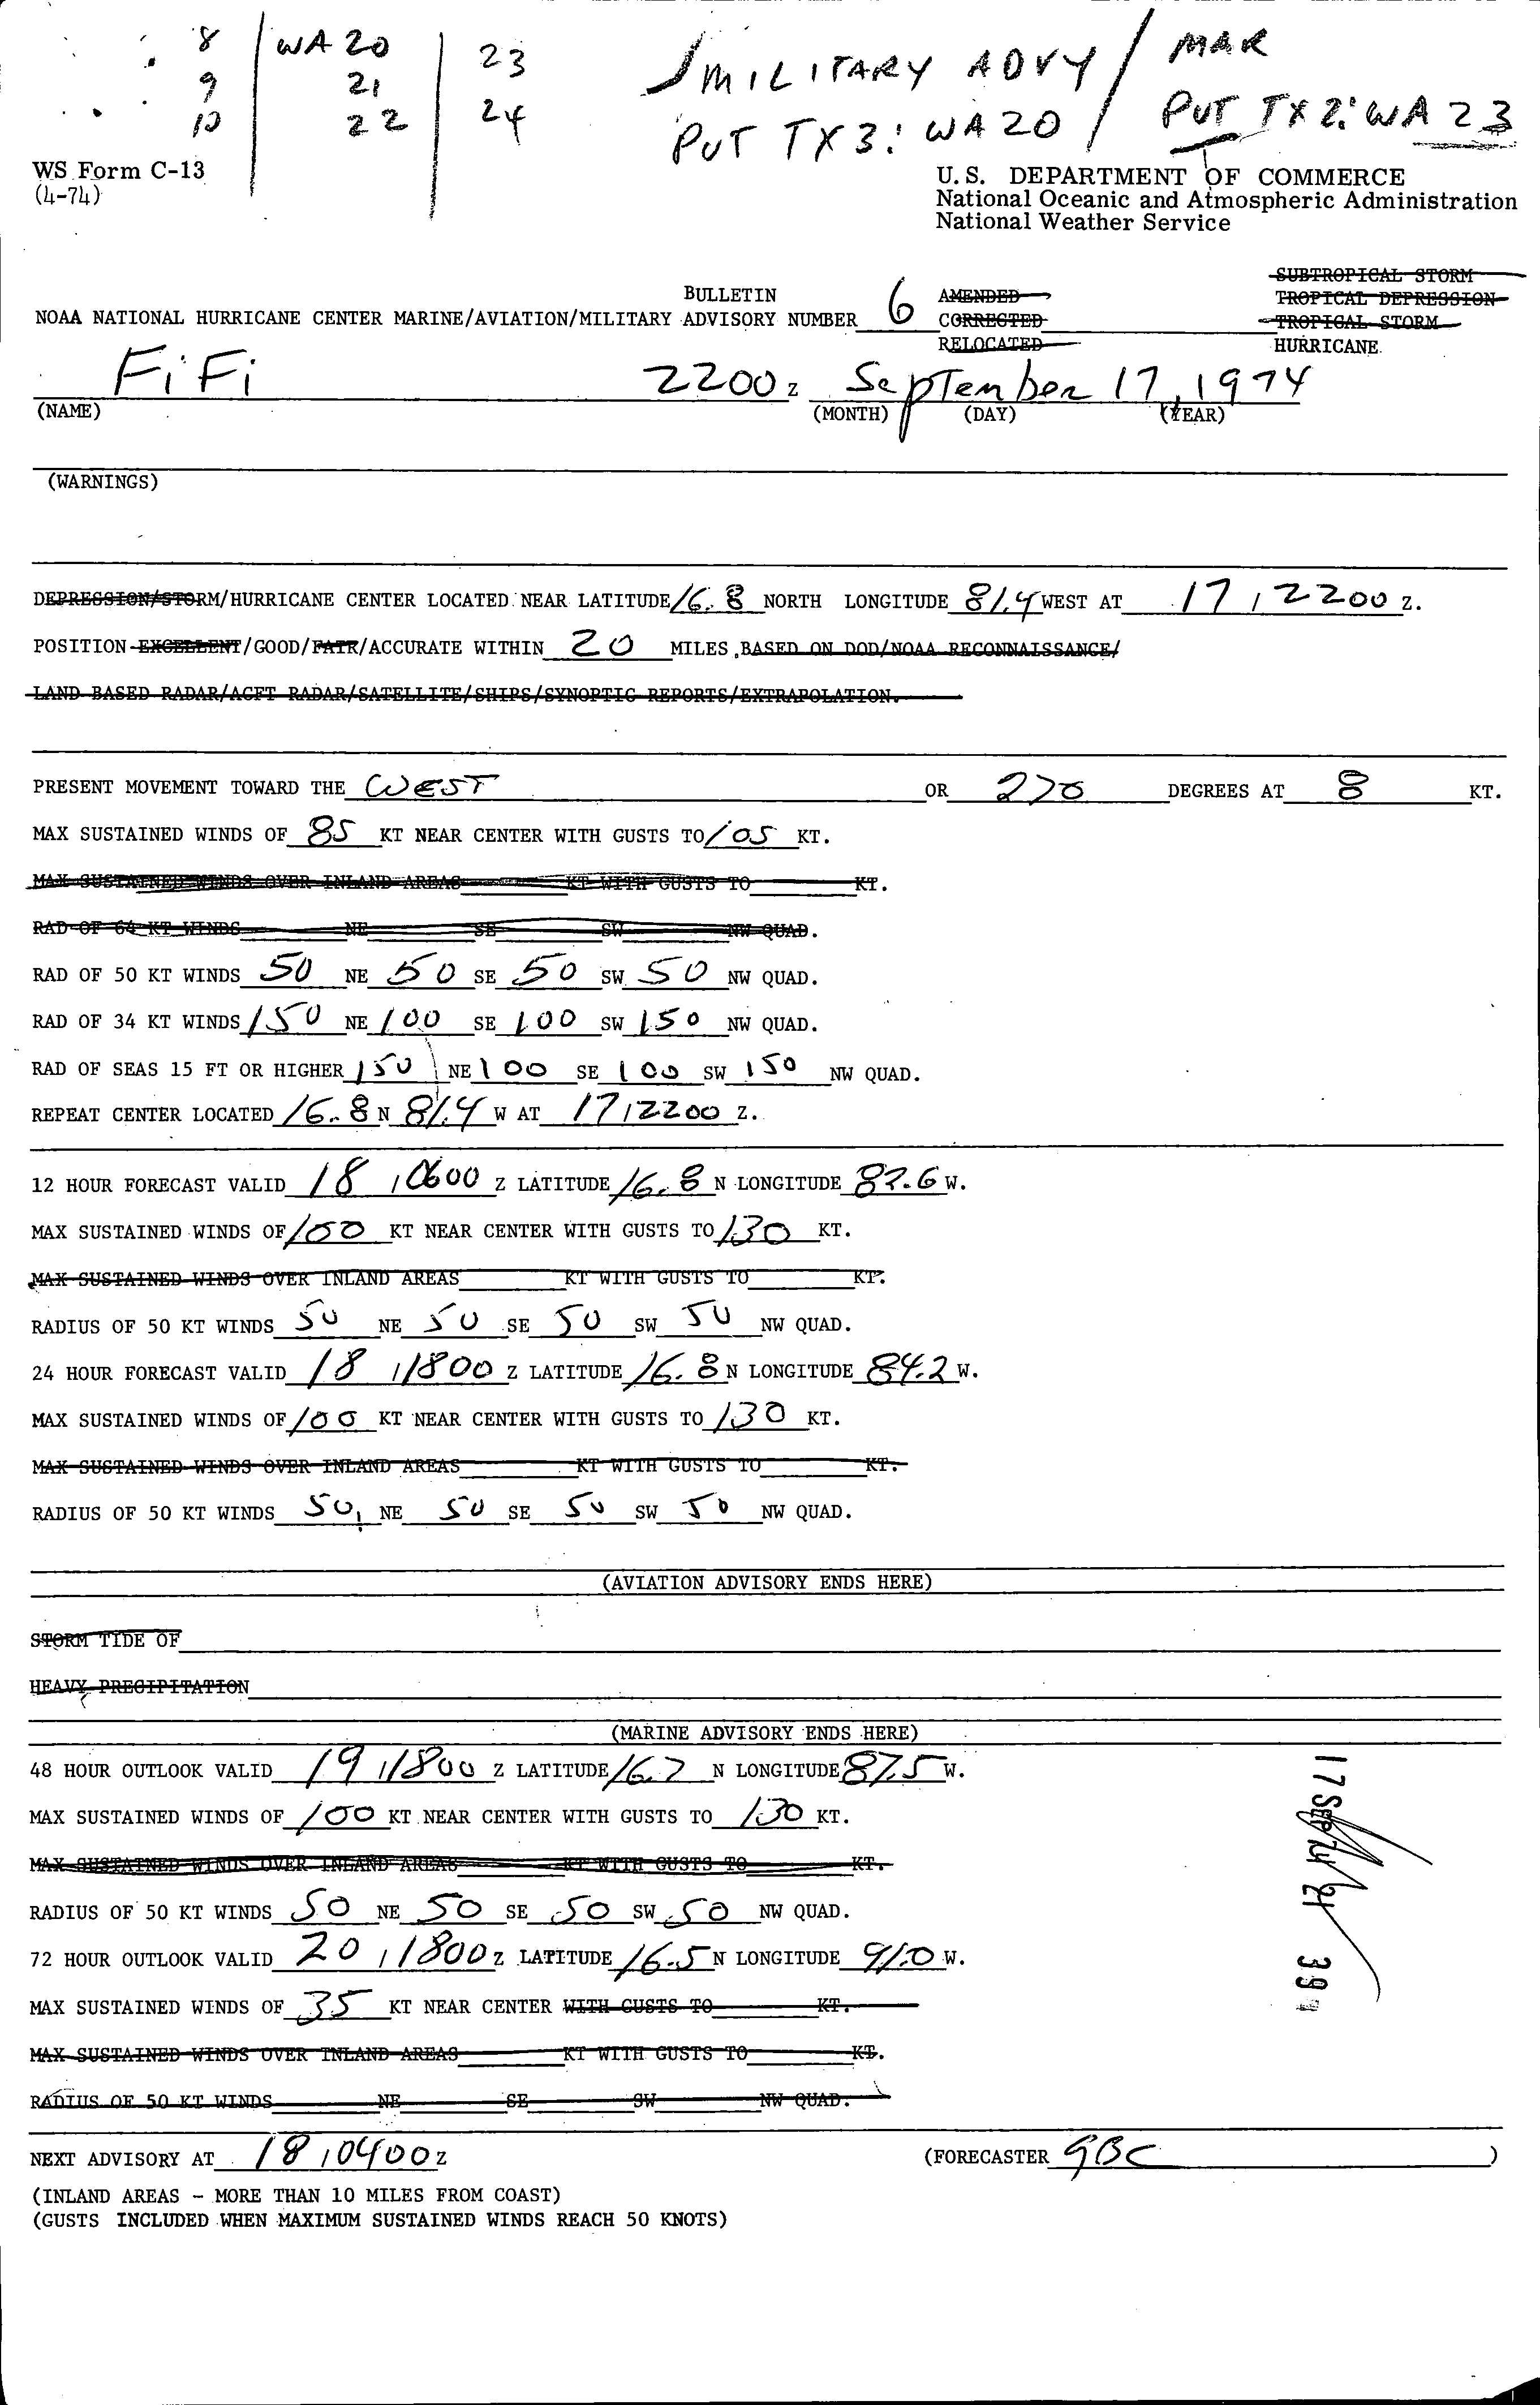 8 | WA 20 | 23 / MILITARY ADVY / MAR
9 | 21 | 24 PUT TX 3: WA 20 / PUT TX 2: WA 23
10 | 22
WS Form C-13
(4-74)
U.S. DEPARTMENT OF COMMERCE
National Oceanic and Atmospheric Administration
National Weather Service
SUBTROPICAL STORM
BULLETIN AMENDED TROPICAL DEPRESSION
NOAA NATIONAL HURRICANE CENTER MARINE/AVIATION/MILITARY ADVISORY NUMBER 6 CORRECTED TROPICAL STORM
RELOCATED HURRICANE.
FiFi 2200 Z September 17, 1974
(NAME) (MONTH) (DAY) (YEAR)
(WARNINGS)
DEPRESSION/STORM/HURRICANE CENTER LOCATED NEAR LATITUDE 16.8 NORTH LONGITUDE 81.4 WEST AT 17 / 2200 Z.
POSITION EXCELLENT/GOOD/FAIR/ACCURATE WITHIN 20 MILES BASED ON DOD/NOAA RECONNAISSANCE/
LAND BASED RADAR/ACFT RADAR/SATELLITE/SHIPS/SYNOPTIC REPORTS/EXTRAPOLATION.
PRESENT MOVEMENT TOWARD THE WEST OR 270 DEGREES AT 8 KT.
MAX SUSTAINED WINDS OF 85 KT NEAR CENTER WITH GUSTS TO 105 KT.
MAX SUSTAINED WINDS OVER INLAND AREAS KT WITH GUSTS TO KT.
RAD OF 64 KT WINDS NE SE SW NW QUAD.
RAD OF 50 KT WINDS 50 NE 50 SE 50 SW 50 NW QUAD.
RAD OF 34 KT WINDS 150 NE 100 SE 100 SW 150 NW QUAD.
RAD OF SEAS 15 FT OR HIGHER 150 NE 100 SE 100 SW 150 NW QUAD.
REPEAT CENTER LOCATED 16.8 N 81.4 W AT 17/2200 Z.
12 HOUR FORECAST VALID 18 /0600 Z LATITUDE 16.8 N LONGITUDE 82.6 W.
MAX SUSTAINED WINDS OF 100 KT NEAR CENTER WITH GUSTS TO 130 KT.
MAX SUSTAINED WINDS OVER INLAND AREAS KT WITH GUSTS TO KT.
RADIUS OF 50 KT WINDS 50 NE 50 SE 50 SW 50 NW QUAD.
24 HOUR FORECAST VALID 18 /1800 Z LATITUDE 16.8 N LONGITUDE 84.2 W.
MAX SUSTAINED WINDS OF 100 KT NEAR CENTER WITH GUSTS TO 130 KT.
MAX SUSTAINED WINDS OVER INLAND AREAS KT WITH GUSTS TO KT.
RADIUS OF 50 KT WINDS 50 NE 50 SE 50 SW 50 NW QUAD.
(AVIATION ADVISORY ENDS HERE)
STORM TIDE OF
HEAVY PRECIPITATION
(MARINE ADVISORY ENDS HERE)
48 HOUR OUTLOOK VALID 19 /1800 Z LATITUDE 16.7 N LONGITUDE 87.5 W.
MAX SUSTAINED WINDS OF 100 KT NEAR CENTER WITH GUSTS TO 130 KT.
MAX SUSTAINED WINDS OVER INLAND AREAS KT WITH GUSTS TO KT.
RADIUS OF 50 KT WINDS 50 NE 50 SE 50 SW 50 NW QUAD.
72 HOUR OUTLOOK VALID 20 /1800 Z LATITUDE 16.5 N LONGITUDE 91.0 W.
MAX SUSTAINED WINDS OF 35 KT NEAR CENTER WITH GUSTS TO KT.
MAX SUSTAINED WINDS OVER INLAND AREAS KT WITH GUSTS TO KT.
RADIUS OF 50 KT WINDS NE SE SW NW QUAD.
17 SEP 74 21 39
NEXT ADVISORY AT 18 /0400 Z (FORECASTER GBC )
(INLAND AREAS - MORE THAN 10 MILES FROM COAST)
(GUSTS INCLUDED WHEN MAXIMUM SUSTAINED WINDS REACH 50 KNOTS)